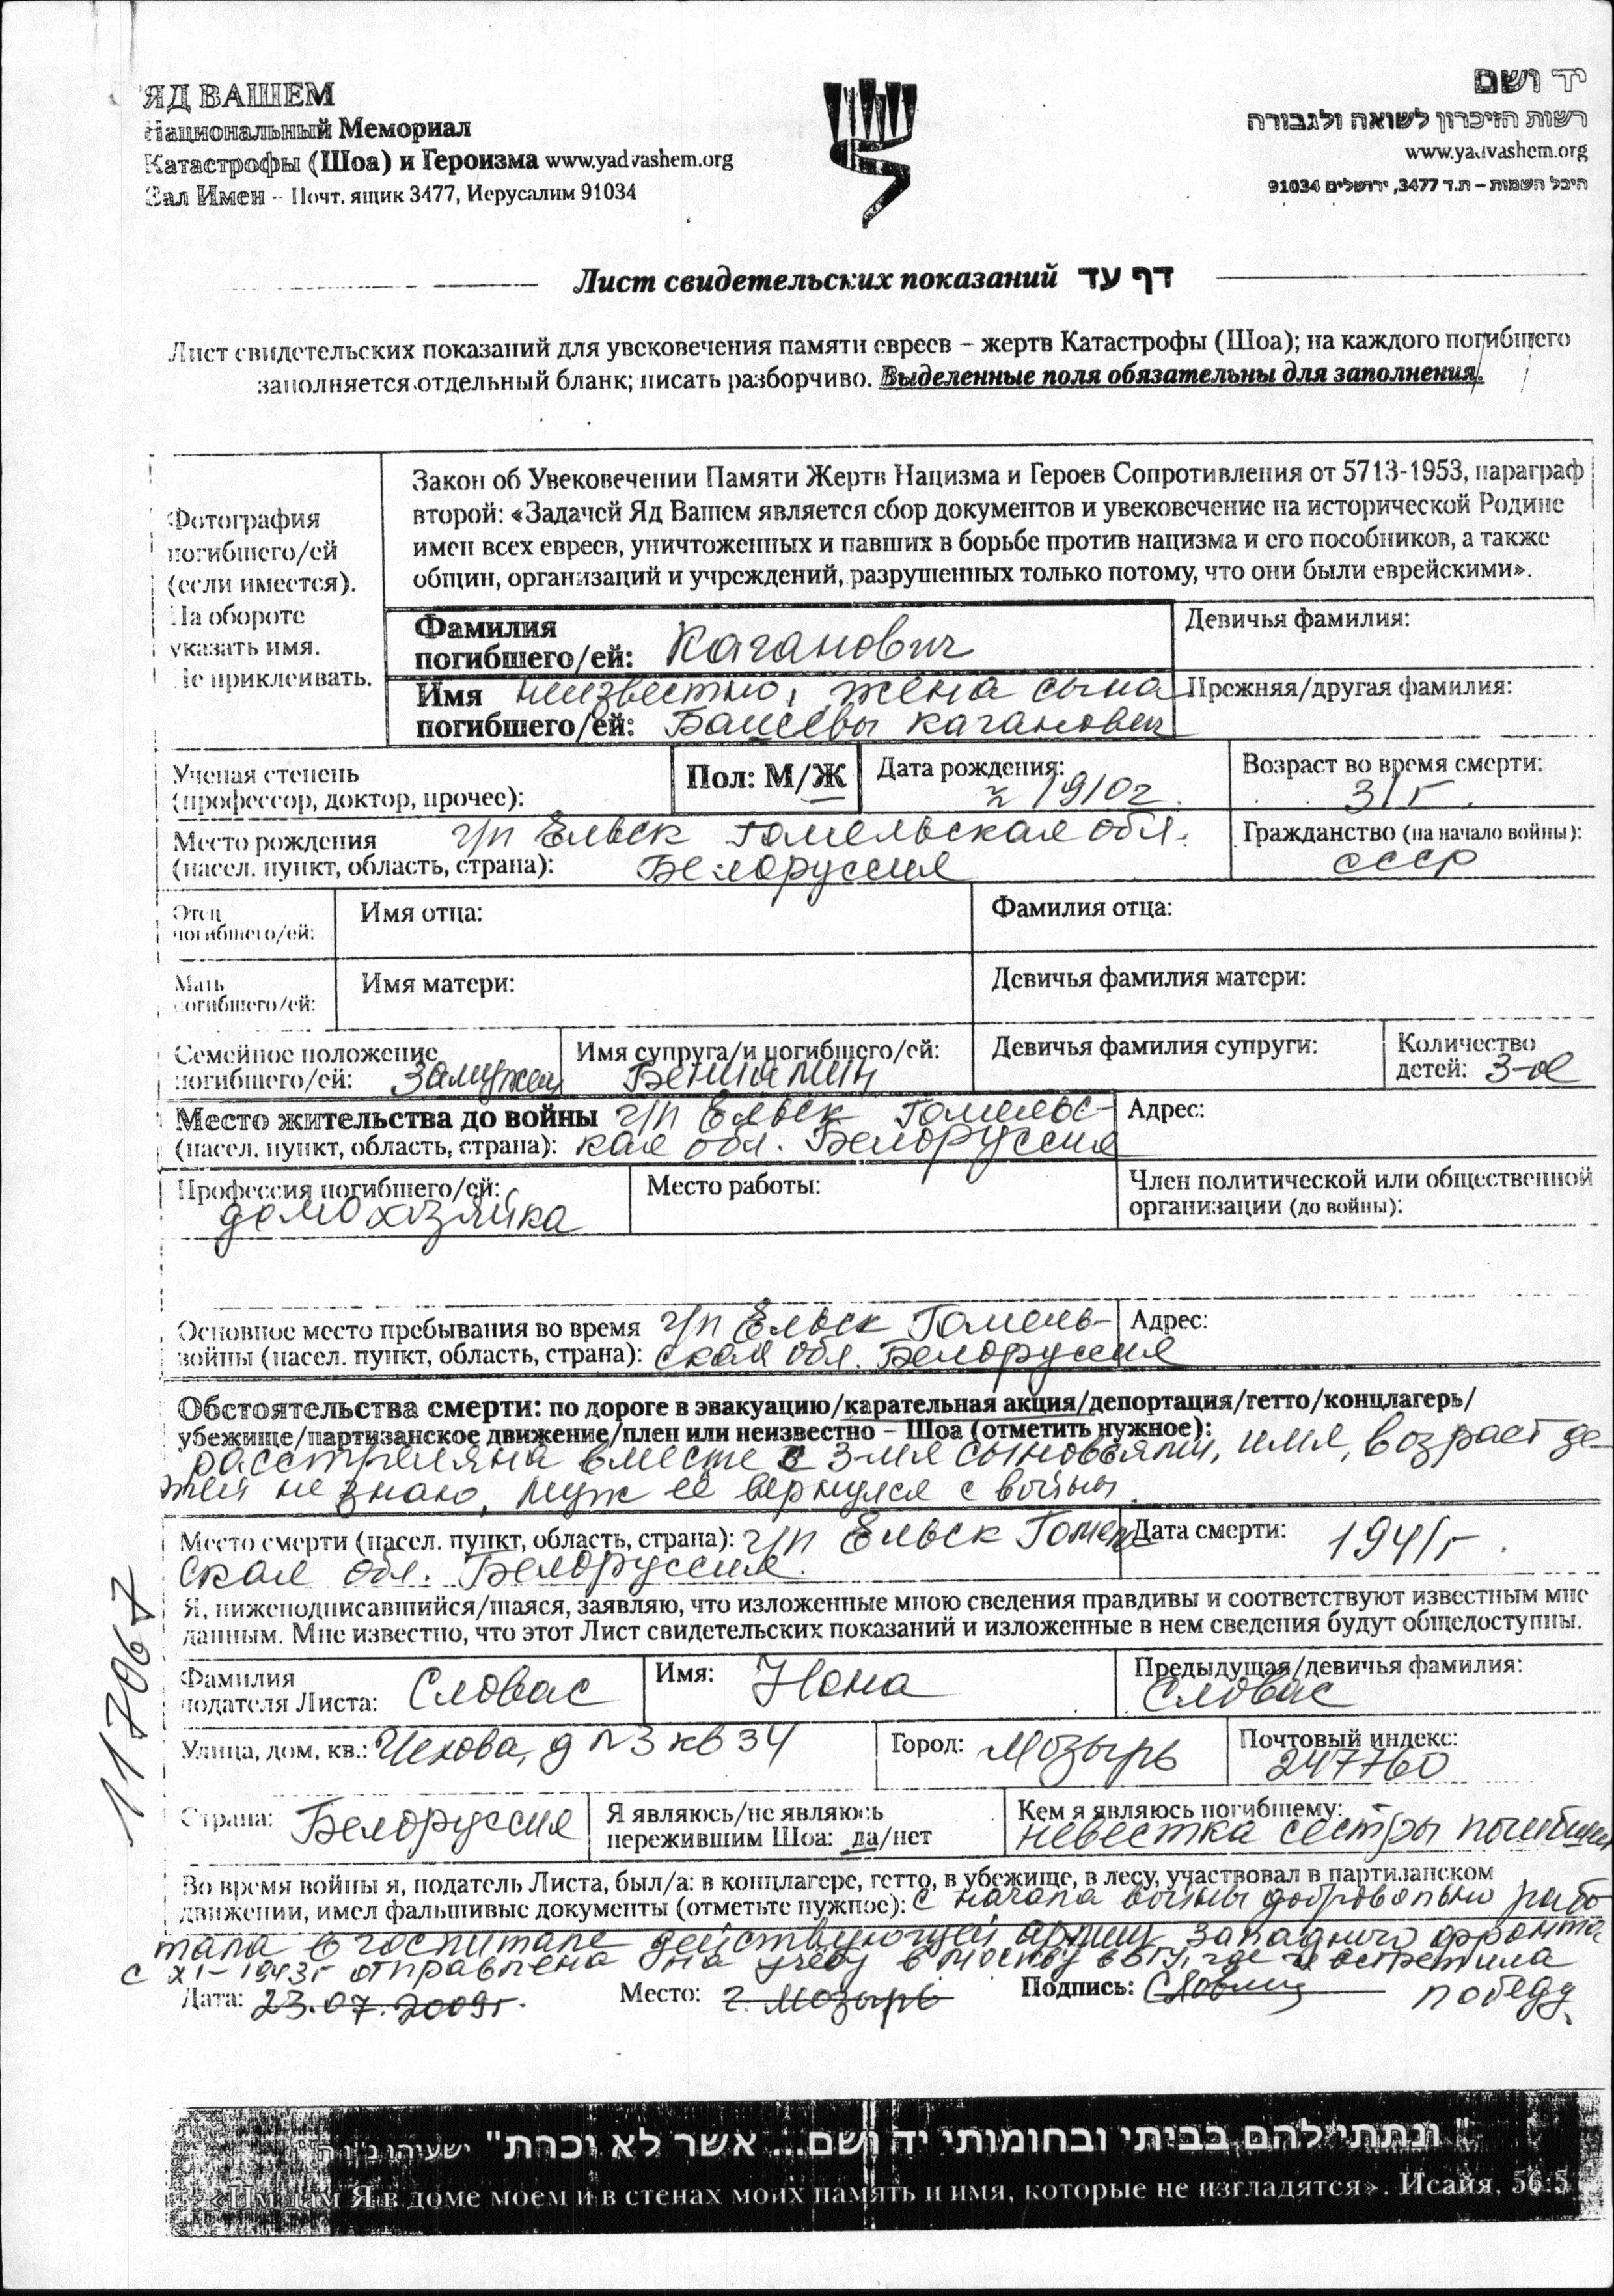 ЯД ВАШЕМ
Национальный Мемориал
Катастрофы (Шоа) и Героизма www.yadvashem.org
Зал Имен -- Почт. ящик 3477, Иерусалим 91034
יד ושם
רשות הזיכרון לשואה ולגבורה
www.yadvashem.org
היכל השמות – ת.ד 3477, ירושלים 91034
Лист свидетельских показаний דף עד
Лист свидетельских показаний для увековечения памяти евреев – жертв Катастрофы (Шоа); на каждого погибшего
заполняется отдельный бланк; писать разборчиво. Выделенные поля обязательны для заполнения.
Фотография
погибшего/ей
(если имеется).
На обороте
указать имя.
Не приклеивать.
Закон об Увековечении Памяти Жертв Нацизма и Героев Сопротивления от 5713-1953, параграф
второй: «Задачей Яд Вашем является сбор документов и увековечение на исторической Родине
имен всех евреев, уничтоженных и павших в борьбе против нацизма и его пособников, а также
общин, организаций и учреждений, разрушенных только потому, что они были еврейскими».
Фамилия
погибшего/ей: Каганович
Девичья фамилия:
Имя неизвестно, жена сына
погибшего/ей: Башевы Каганович
Прежняя/другая фамилия:
Ученая степень
(профессор, доктор, прочее):
Пол: М/Ж
Дата рождения:
1910г.
Возраст во время смерти:
31г.
Место рождения г/п Ельск Гомельская обл.
(насел. пункт, область, страна): Белоруссия
Гражданство (на начало войны):
СССР
Отец
погибшего/ей:
Имя отца:
Фамилия отца:
Мать
погибшего/ей:
Имя матери:
Девичья фамилия матери:
Семейное положение
погибшего/ей: замужем
Имя супруга/и погибшего/ей:
Бениямин
Девичья фамилия супруги:
Количество
детей: 3-ое
Место жительства до войны г/п Ельск Гомельс-
(насел. пункт, область, страна): кая обл. Белоруссия
Адрес:
Профессия погибшего/ей:
домохозяйка
Место работы:
Член политической или общественной
организации (до войны):
Основное место пребывания во время г/п Ельск Гомель-
войны (насел. пункт, область, страна): ская обл. Белоруссия
Адрес:
Обстоятельства смерти: по дороге в эвакуацию/карательная акция/депортация/гетто/концлагерь/
убежище/партизанское движение/плен или неизвестно – Шоа (отметить нужное):
расстреляна вместе с 3-мя сыновьями, имя, возраст де-
тей не знаю, муж её вернулся с войны.
Место смерти (насел. пункт, область, страна): г/п Ельск Гомель
ская обл. Белоруссия.
Дата смерти: 1941г.
Я, нижеподписавшийся/шаяся, заявляю, что изложенные мною сведения правдивы и соответствуют известным мне
данным. Мне известно, что этот Лист свидетельских показаний и изложенные в нем сведения будут общедоступны.
117067
Фамилия
подателя Листа: Словас
Имя: Нона
Предыдущая/девичья фамилия:
Словас
Улица, дом, кв.: Чехова, д N3 кв 34
Город: Мозырь
Почтовый индекс:
247760
Страна: Белоруссия
Я являюсь/не являюсь
пережившим Шоа: да/нет
Кем я являюсь погибшему:
невестка сестры
Во время войны я, податель Листа, был/а: в концлагере, гетто, в убежище, в лесу, участвовал в партизанском
движении, имел фальшивые документы (отметьте нужное): с начала войны добровольно рабо
тала в госпитале действующей армии Западного фронта
с XI-1943г отправлена на учёбу в Москву в ВГУ, где и встретила
победу
Дата: 23.07.2009г.
Место: г. Мозырь
Подпись:
"ונתתי להם בביתי ובחומותי יד ושם... אשר לא יכרת" ישעיהו נ"ו ה'
«Им дам Я в доме моем и в стенах моих память и имя, которые не изгладятся». Исайя, 56:5